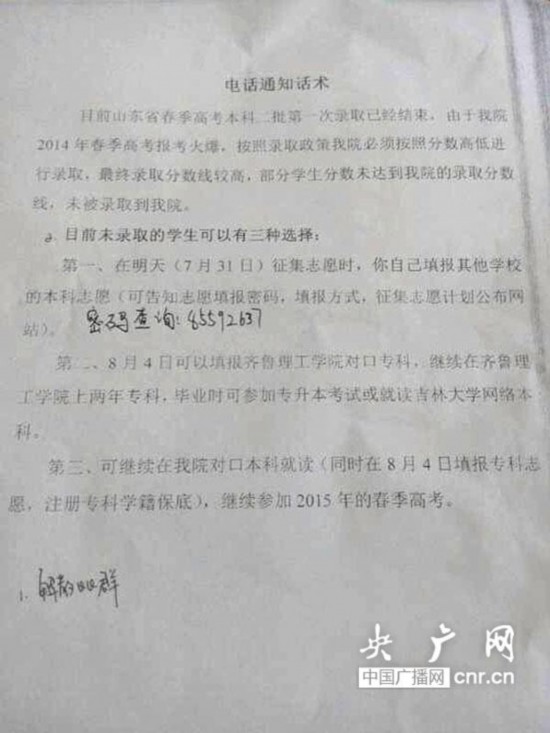 电话通知话术
目前山东省春季高考本科二批第一次录取已经结束，由于我院
2014年春季高考报考火爆，按照录取政策我院必须按照分数高低进
行录取，最终录取分数线较高，部分学生分数未达到我院的录取分数
线，未被录取到我院。
2. 目前未录取的学生可以有三种选择：
第一、在明天（7月31日）征集志愿时，你自己填报其他学校
的本科志愿（可告知志愿填报密码，填报方式，征集志愿计划公布网
站）。 密码查询：85592637
第二、8月4日可以填报齐鲁理工学院对口专科，继续在齐鲁理
工学院上两年专科，毕业时可参加专升本考试或就读吉林大学网络本
科。
第三、可继续在我院对口本科就读（同时在8月4日填报专科志
愿，注册专科学籍保底），继续参加2015年的春季高考。
1. 解散QQ群
央广网
中国广播网 cnr.cn